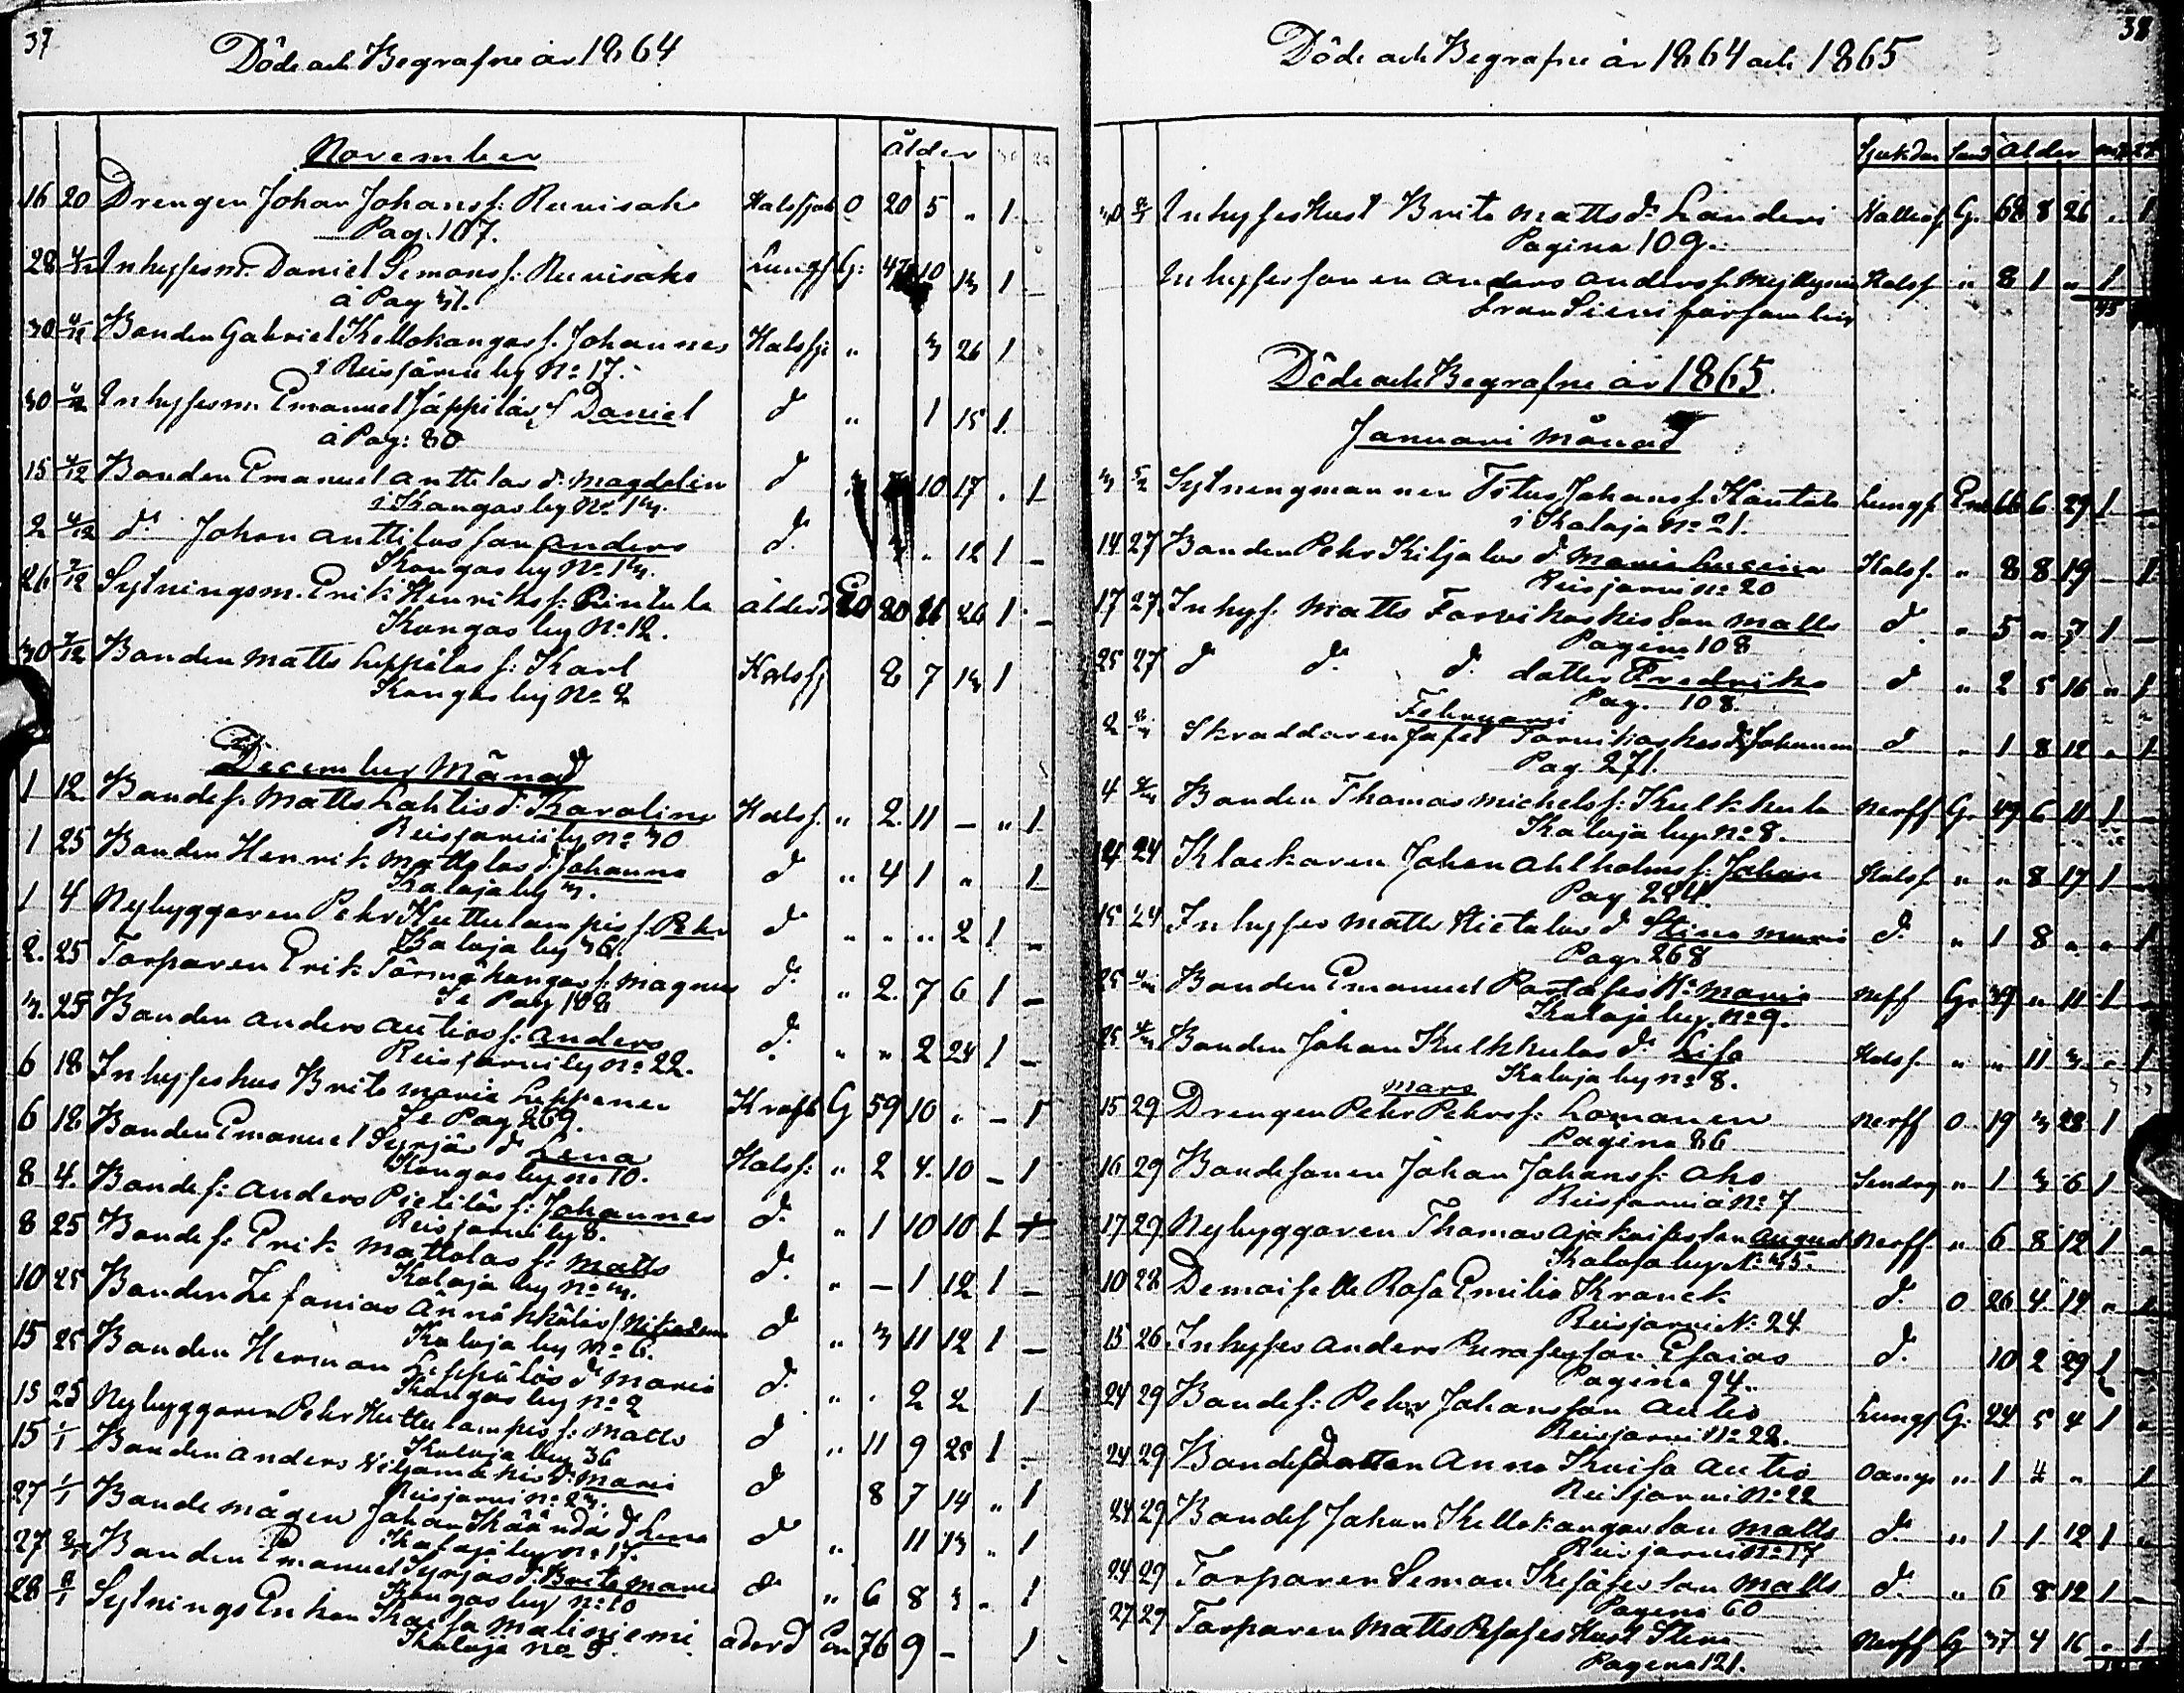 37
Döde och Begrafne år 1864
November
Ålder
16 20 Drengen Johan Johans f: Ruuisaho Halssjuk O 20 5 " 1
Pag. 107.
28 4/12 Inhyses m. Daniel Semons f: Ruuisaho Lungs G: 47 10 13 1 –
á Pag 31.
30 4/12 Bonden Gabriel Kellokangas f. Johannes Halssj: " 3 26 1
i Reisjärvi by No: 17.
30 4/12 Inhyses m. Emanuel Jäppiläs f Daniel d " 1 15 1.
á Pag: 80
15 4/12 Bonden Emanuel Anttilas d: Magdalin d 10 17 . 1
i Kangas by No. 13.
2 4/12 do Johan Anttilas son Anders d. . 12 1 –
Kangas by No. 13.
26 7/12 Sytningsm. Erik Henriks f: Rintula ålderd 80 24 1 –
Kangas by No: 12.
30 7/12 Bonden Matts Leppälas f: Karl Halssj 2 7 13 1
Kangas by No. 2
December Månad
1 12. Bonde f: Matts Lahtis d: Karolina Halsf. " 2. 11 – " 1
Reisjärvi by No 30
1 25 Bonden Henrik Mattolas d: Johanna d " 4 1 " 1
Kalaja by 3.
1 4 Nybyggaren Pehr Huttulampis f. Pehr d " " " 2 1 –
Kalaja by 36.
2. 25 Torparen Erik Törmäkangas f: Magnus d. " 2. 7 6 1 –
Pag 108
3. 25 Bonden Anders Autios f: Anders d. " " 2 24 1 –
Reisjärvi by No: 22.
6 18 Inhyses hus Brita Maria Leppenen Kraft G 59 10 " – 1
Pag 269.
6 18 Bonden Emanuel Syrjäs d Lena Halsf: " 2 4. 10 – 1
Kangas by No 10.
8 4. Bonde f: Anders Pietiläs f: Johannes d. " 1 10 10 1
Reisjärvi by 8.
8 25 Bonde f: Erik Mattolas f: Matts d. " – 1 12 1 –
Kalaja by No 3.
10 25 Bonden Zefanias Ännäkkäläs f. Nikodem d " 3 11 12 1 –
Kalaja by No: 6.
15 25 Bonden Herman Leppäläs d: Maria d. " . 2 2 1
Kangas by No: 2
15 25 Nybyggaren Pehr Huttulampis f: Matts d " 11 9 25 1 –
Kalaja by 36
15 1/1 Bonden Anders d: Maria d 8 7 14 " 1
Reisjärvi No: 23.
27 1/1 Bondemågen Johan Kääntäs d Lena d " 11 13 " 1
Kalaja by No: 17.
27 Bonden Emanuel Syrjäs d. Brita Maria do " 6 8 3 . 1
Kangas by No: 10
28 8/1 Sytnings Enkan Kaisa Maliniemi åderd En 76 9 – 1
Kalaja No 5.
38
Döde och Begrafne år 1864 och 1865
Sjukdom Stånd Ålder mk qk
Inhyses hust Brita Matts dr Landeri Hallsf G. 68 8 26 " 1
Pagina 109.
Inhyses sonen Anders Anders f. Halsf " 8 1 " 1
från Sievi församling
Döde och Begrafne år 1865.
Januari Månad
3 5/2 Sytningmannen Titus Johans f. Kantola Lungs Enk 66 6 29 1 –
i Kalaja No 21.
14 27 Bonden Pehr Kiljalas d. Maria Lucina Halsf. " 8 8 19 – 1
Reisjärvi No 20
17 27 Inhys. Matts Torvikoskis son Matts d. " 5 " 7 1 –
Pagina 108
25 27 d d. d. dotter Fredrika d " 2 5 16 " 1
Pag. 108.
Februari
2 Skraddaren Jafet Torvikoskis dr Johanna d " 1 8 12 " 1
Pag 271.
4 Bonden Thomas Michels f: Kulkkula Nerff G. 49 6 11 1 –
Kalaja by No: 8.
24 Klockaren Johan Ahlholms f. Johan Halsf " " 8 17 1 –
Pag 244.
15 24 Inhyses Matts Hietalas d Stina Maria d. " 1 8 " " 1
Pag. 268
25 Bonden Emanuel Hu Maria Neff Gr 39 " 11 – 1
Kalaja by No 9.
25 Bonden Johan Kulkkulas dr Lisa Halsf. " " 11 3 " 1
Kalaja by No 8.
Mars
15 29 Drengen Pehr Pehrs f: Lomanen Nerff O 19 3 28 1
Pagina 86
16 29 Bondesonen Johan Johans f. Aho Sendrag " 1 3 6 1
Reisjärvi á No: 7
17 29 Nybyggaren Thomas son August Nerff " 6 8 12 1 "
Kalaja by No: 35.
10 28 Demoiselle Rosa Emilia Kranck d. O 26 4 14 " 1
Reisjärvi No 24
15 26 Inhyses Anders son Esaias d. 10 2 29 1 –
Pagina 94.
24 29 Bonde f: Pehr Johansson Autio Lungs G. 24 5 4 1 "
Reisjärvi No: 22.
24 29 Bondedotteren Anna Kaisa Autio " 1 4 " 1
Reisjärvi No: 22
24 29 Bonde f Johan Kellokangas son Matts d. " 1 1 12 1 "
Reisjärvi No 17
24 29 Torparen Semon Kesäses son Matts d. " 6 8 12 1 –
Pagena 60
27 29 Torparen Matts Hust Stina Nerff G 37 4 16 " 1
Pagena 121.